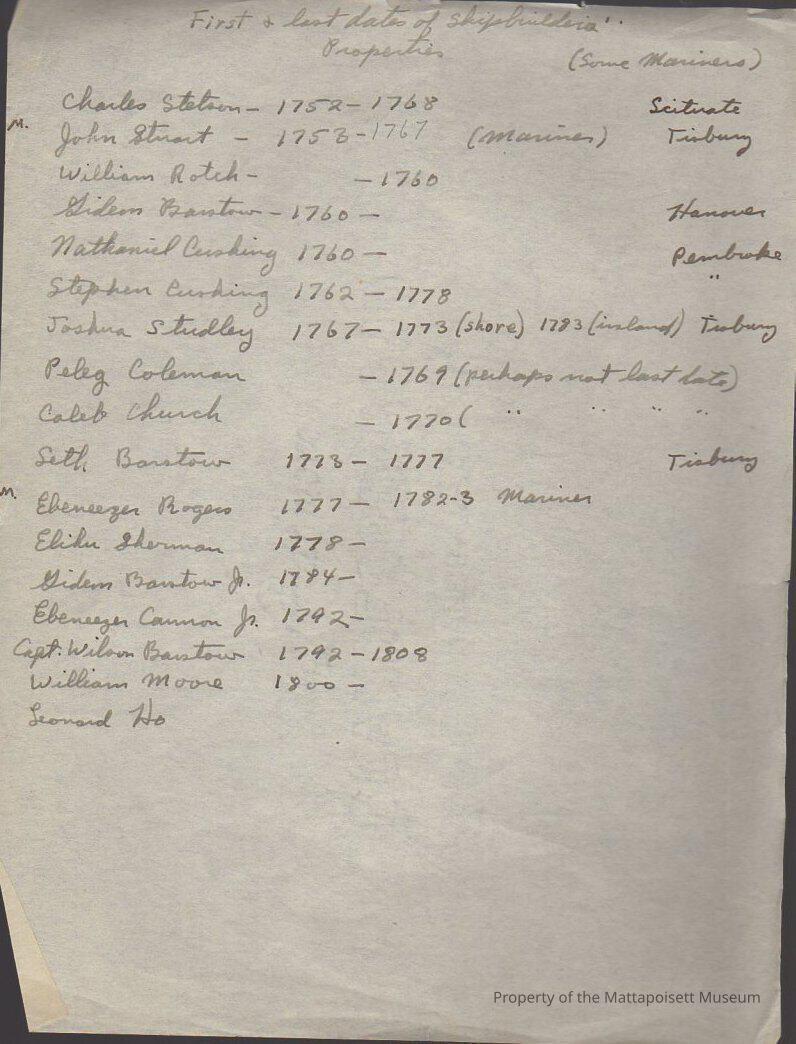 First & last dates of Shipbuilders'
Properties
(Some Mariners)
Charles Stetson - 1752 - 1768 Scituate
M. John Stuart - 1753 - 1767 (Mariner) Tisbury
William Rotch - - 1760
Gideon Barstow - 1760 - Hanover
Nathaniel Cushing 1760 - Pembroke
Stephen Cushing 1762 - 1778 "
Joshua Studley 1767 - 1773 (shore) 1783 (inland) Tisbury
Peleg Coleman - 1769 (perhaps not last date)
Caleb Church - 1770 ( " " " "
Seth Barstow 1773 - 1777 Tisbury
M. Ebeneezer Rogers 1777 - 1782-3 Mariner
Elihu Sherman 1778 -
Gideon Barstow Jr. 1784 -
Ebeneezer Cannon Jr. 1792 -
Capt. Wilson Barstow 1792 - 1808
William Moore 1800 -
Leonard Ho
Property of the Mattapoisett Museum